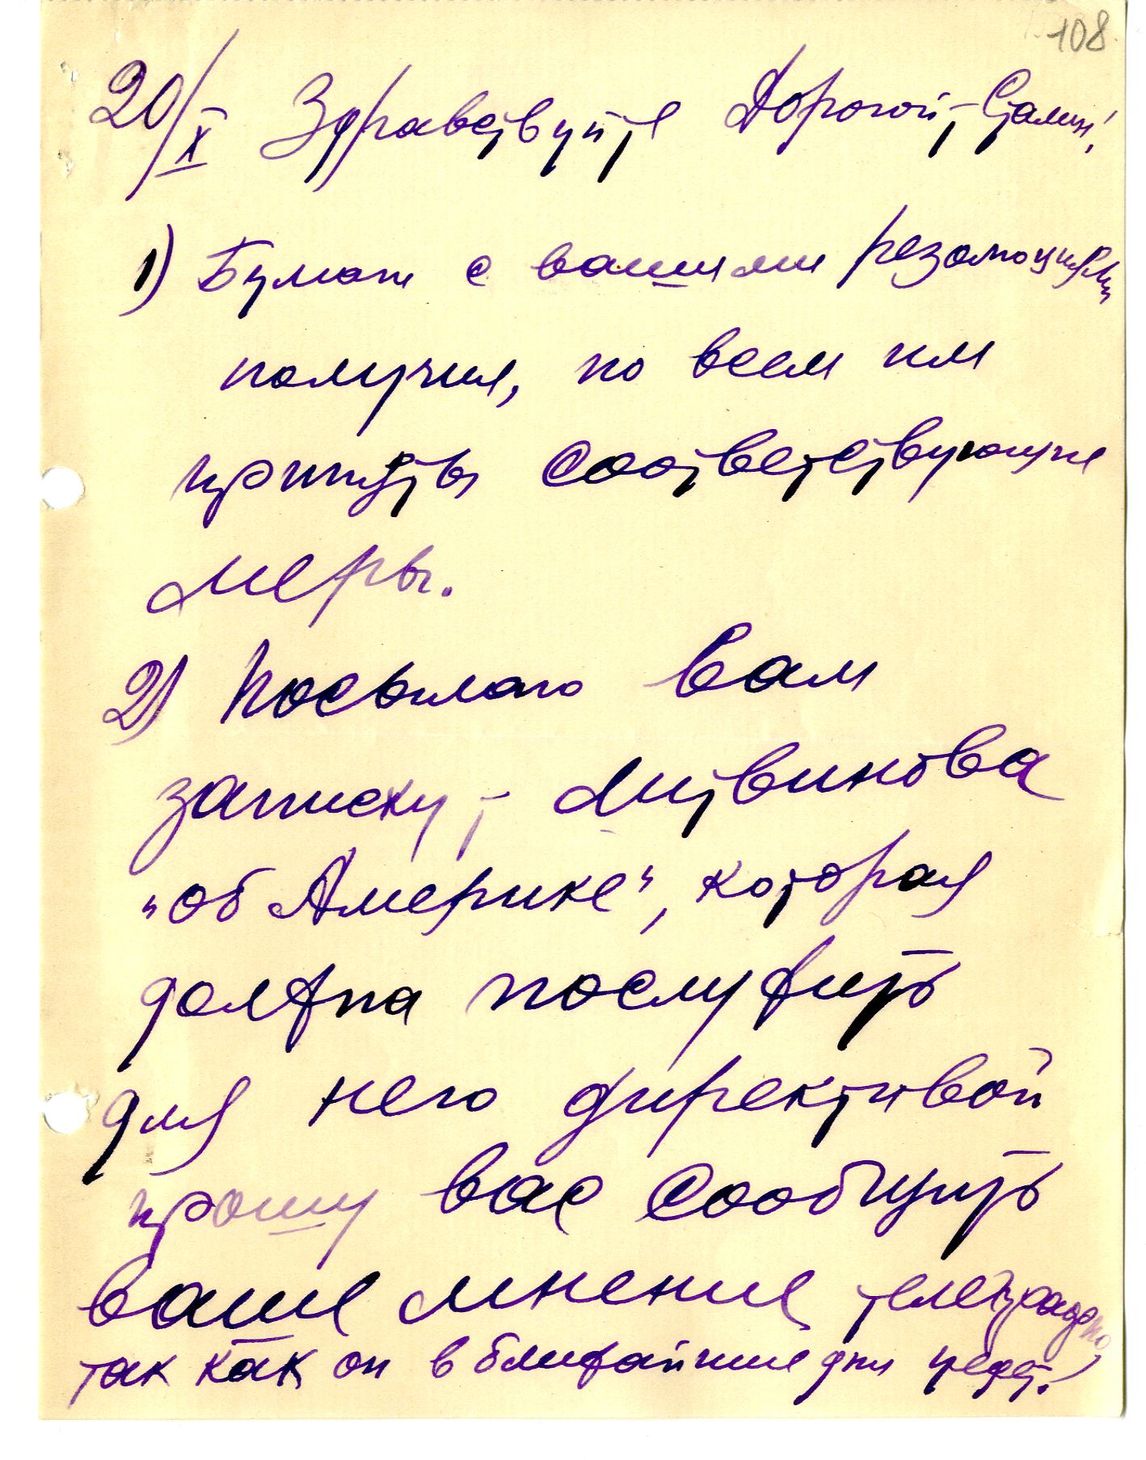 108
20/X Здравствуйте Дорогой т. Сталин!
1) Бумаги с вашими резолюциями
получил, по всем им
приняты соответствующие
меры.
2) Посылаю вам
записку т. Литвинова
"об Америке", которая
должна послужить
для него директивой
прошу вас сообщить
ваше мнение телеграфно,
так как он в ближайшие дни уедет.